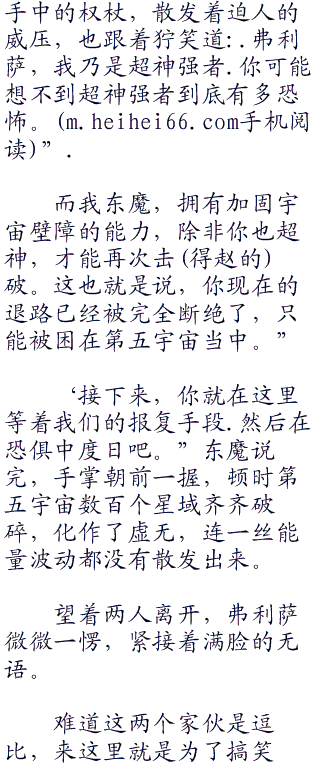 手中的权杖，散发着迫人的
威压，也跟着狞笑道:.弗利
萨，我乃是超神强者.你可能
想不到超神强者到底有多恐
怖。(m.heihei66.com手机阅
读)”.
而我东魔，拥有加固宇
宙壁障的能力，除非你也超
神，才能再次击(得赵的)
破。这也就是说，你现在的
退路已经被完全断绝了，只
能被困在第五宇宙当中。”
‘接下来，你就在这里
等着我们的报复手段.然后在
恐俱中度日吧。”东魔说
完，手掌朝前一握，顿时第
五宇宙数百个星域齐齐破
碎，化作了虚无，连一丝能
量波动都没有散发出来。
望着两人离开，弗利萨
微微一愣，紧接着满脸的无
语。
难道这两个家伙是逗
比，来这里就是为了搞笑